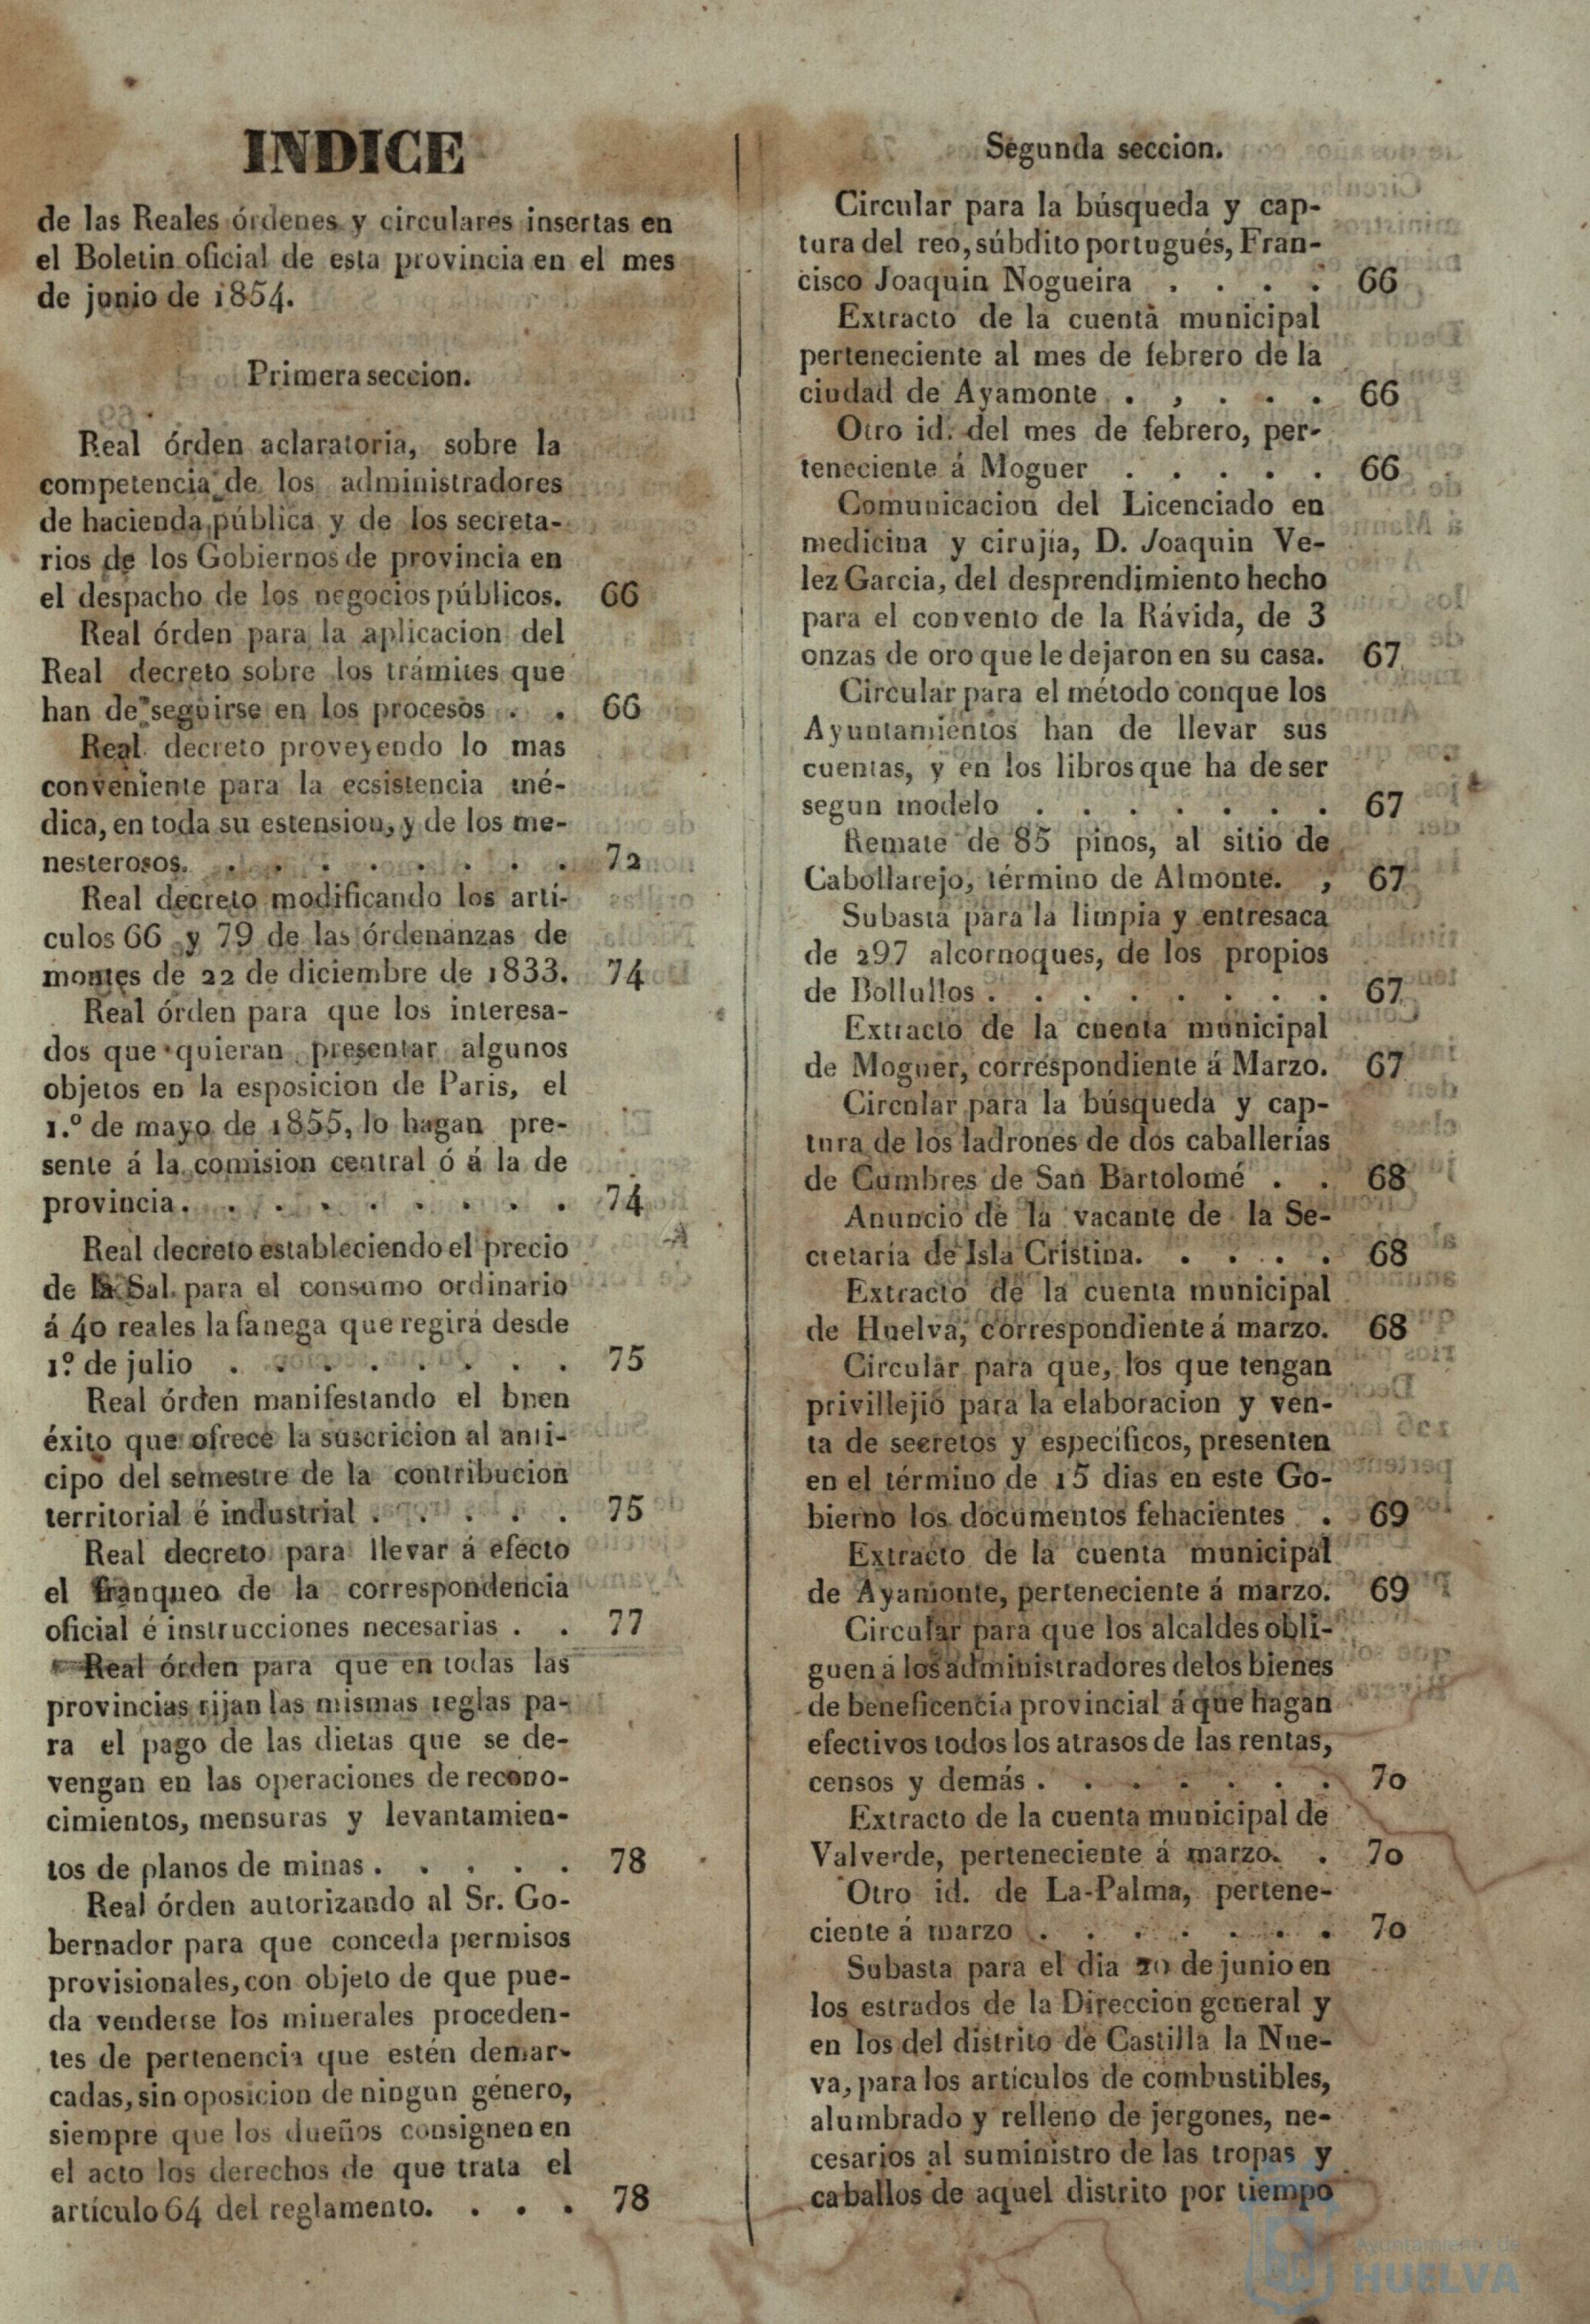 INDICE
de las Reales órdenes y circulares insertas en
el Boletin oficial de esta provincia en el mes
de junio de 1854.
Primera seccion.
Real órden aclaratoria, sobre la
competencia de los administradores
de hacienda pública y de los secreta-
rios de los Gobiernos de provincia en
el despacho de los negocios públicos. 66
Real órden para la aplicacion del
Real decreto sobre los trámites que
han de seguirse en los procesos . . 66
Real decreto proveyendo lo mas
conveniente para la ecsistencia mé-
dica, en toda su estension, y de los me-
nesterosos. . . . . . . . . 72
Real decreto modificando los artí-
culos 66 y 79 de las órdenanzas de
montes de 22 de diciembre de 1833. 74
Real órden para que los interesa-
dos que quieran presentar algunos
objetos en la esposicion de Paris, el
1.º de mayo de 1855, lo hagan pre-
sente á la comision central ó á la de
provincia. . . . . . . . . 74
Real decreto estableciendo el precio
de la Sal para el consumo ordinario
á 40 reales la fanega que regirá desde
1º de julio . . . . . . . . 75
Real órden manifestando el buen
éxito que ofrece la suscricion al anti-
cipo del semestre de la contribucion
territorial é industrial . . . . . 75
Real decreto para llevar á efecto
el franqueo de la correspondencia
oficial é instrucciones necesarias . . 77
Real órden para que en todas las
provincias rijan las mismas reglas pa-
ra el pago de las dietas que se de-
vengan en las operaciones de recono-
cimientos, mensuras y levantamien-
tos de planos de minas . . . . . 78
Real órden autorizando al Sr. Go-
bernador para que conceda permisos
provisionales, con objeto de que pue-
da venderse los minerales proceden-
tes de pertenencia que estén demar-
cadas, sin oposicion de ningun género,
siempre que los dueños consignen en
el acto los derechos de que trata el
artículo 64 del reglamento. . . . 78
Segunda seccion.
Circular para la búsqueda y cap-
tura del reo, súbdito portugués, Fran-
cisco Joaquin Nogueira . . . . 66
Extracto de la cuenta municipal
perteneciente al mes de febrero de la
ciudad de Ayamonte . , . . . 66
Otro id. del mes de febrero, per-
teneciente á Moguer . . . . . 66
Comunicacion del Licenciado en
medicina y cirujía, D. Joaquin Ve-
lez Garcia, del desprendimiento hecho
para el convento de la Rávida, de 3
onzas de oro que le dejaron en su casa. 67
Circular para el método conque los
Ayuntamientos han de llevar sus
cuentas, y en los libros que ha de ser
segun modelo . . . . . . . 67
Remate de 85 pinos, al sitio de
Cabollarejo, término de Almonte. , 67
Subasta para la limpia y entresaca
de 297 alcornoques, de los propios
de Bollullos . . . . . . . . 67
Extracto de la cuenta municipal
de Moguer, correspondiente á Marzo. 67
Circular para la búsqueda y cap-
tura de los ladrones de dos caballerías
de Cumbres de San Bartolomé . . 68
Anuncio de la vacante de la Se-
cretaria de Isla Cristina. . . . . 68
Extracto de la cuenta municipal
de Huelva, correspondiente á marzo. 68
Circular para que, los que tengan
privillejio para la elaboracion y ven-
ta de secretos y específicos, presenten
en el término de 15 dias en este Go-
bierno los documentos fehacientes . 69
Extracto de la cuenta municipal
de Ayamonte, perteneciente á marzo. 69
Circular para que los alcaldes obli-
guen á los administradores delos bienes
de beneficencia provincial á que hagan
efectivos todos los atrasos de las rentas,
censos y demás . . . . . . . 70
Extracto de la cuenta municipal de
Valverde, perteneciente á marzo. . 70
Otro id. de La-Palma, pertene-
ciente á marzo . . . . . . . 70
Subasta para el dia 20 de junio en
los estrados de la Direccion general y
en los del distrito de Castilla la Nue-
va, para los artículos de combustibles,
alumbrado y relleno de jergones, ne-
cesarios al suministro de las tropas y
caballos de aquel distrito por tiempo
Ayuntamiento de
HUELVA